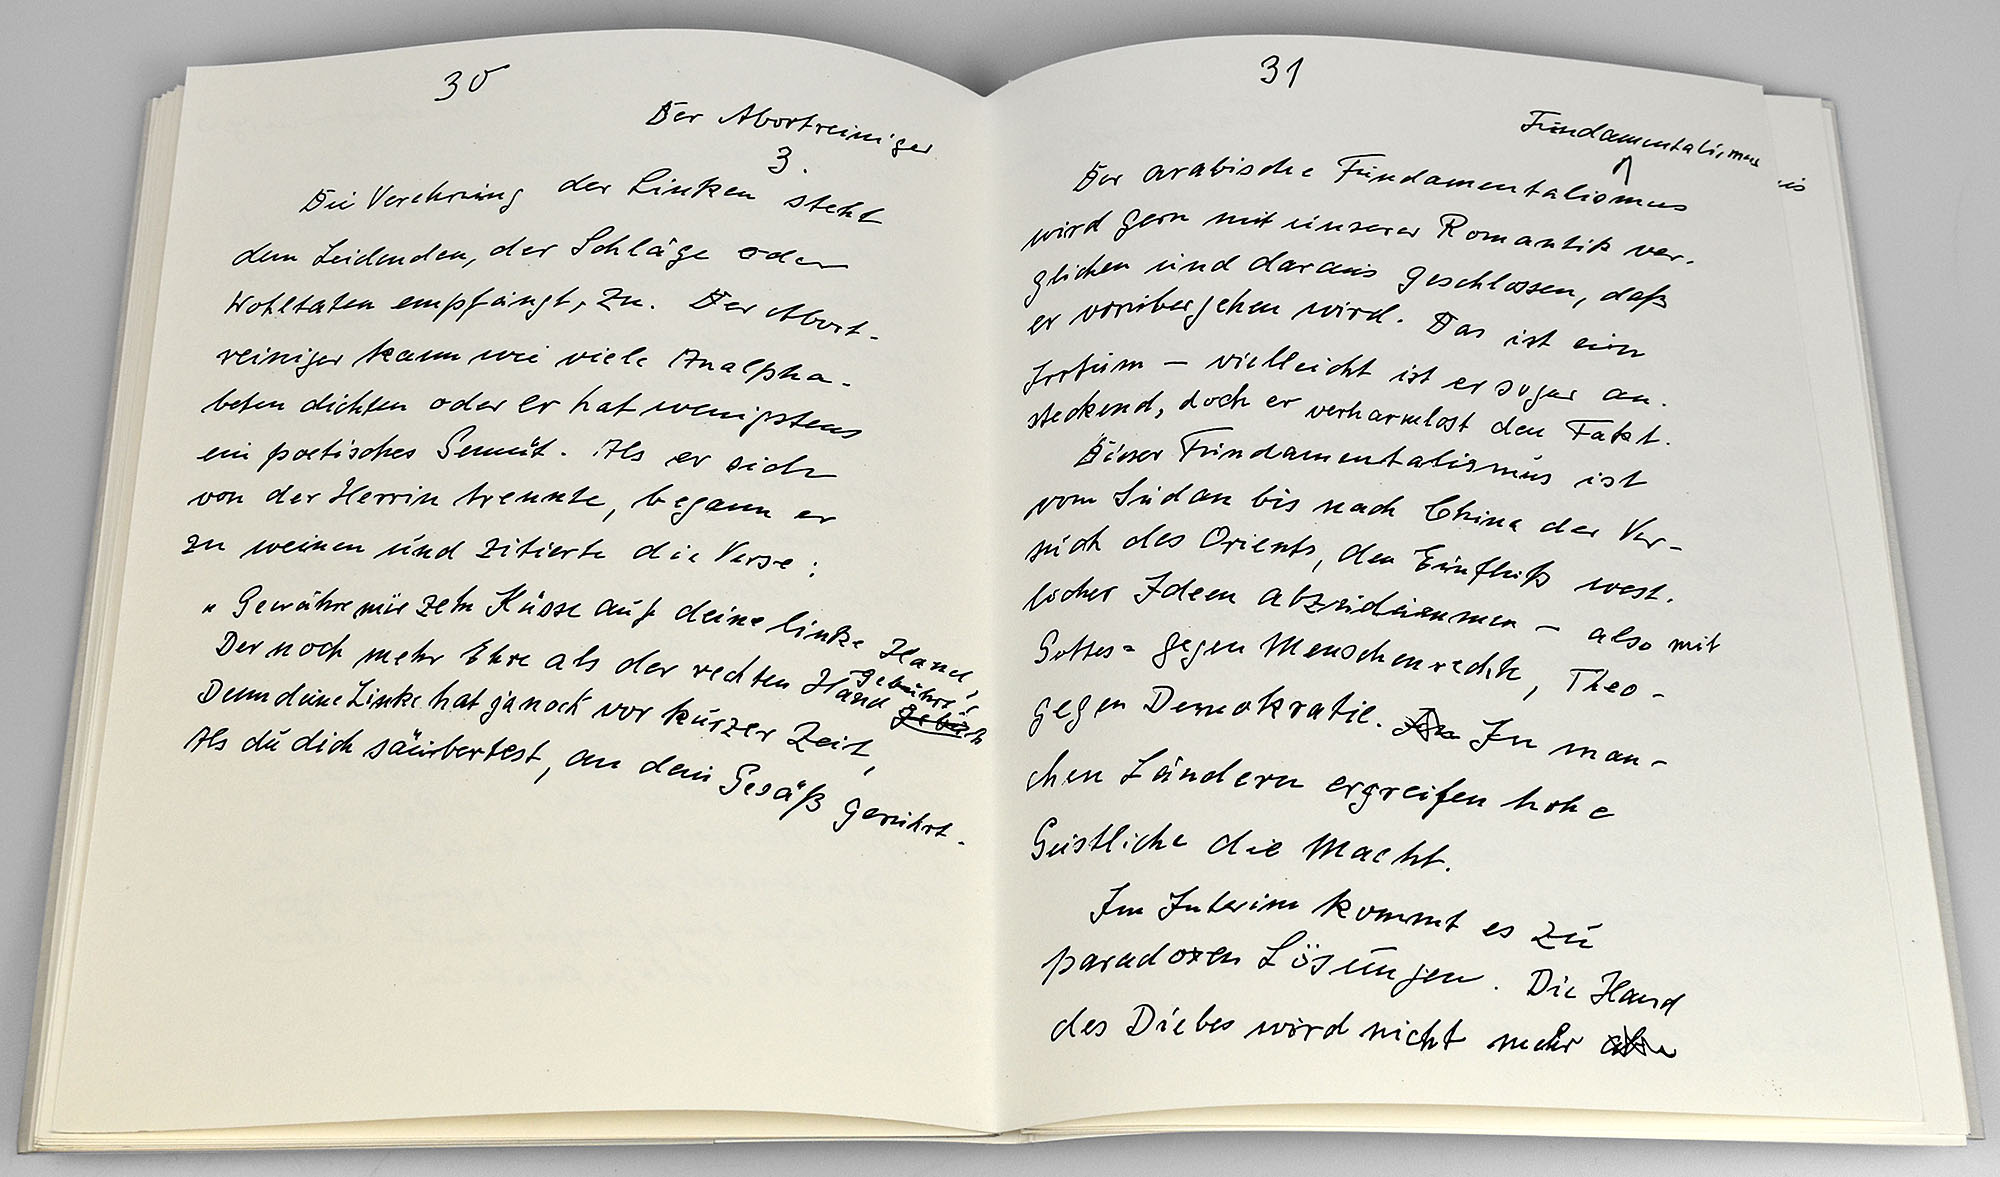 30
Der Abortreiniger
3.
Die Verehrung der Linken steht
dem Leidenden, der Schläge oder
Wohltaten empfängt, zu. Der Abort-
reiniger kann wie viele Analpha-
beten dichten oder er hat wenigstens
ein poetisches Gemüt. Als er sich
von der Herrin trennte, begann er
zu weinen und zitierte die Verse:
"Gewähre mir zehn Küsse auf deine linke Hand,
Der noch mehr Ehre als der rechten Hand gebührt!
Denn deine Linke hat ja noch vor kurzer Zeit,
Als du dich säubertest, an dein Gesäß gerührt.
31
Fundamentalismus
Der arabische Fundamentalismus
wird gern mit unserer Romantik ver-
glichen und daraus geschlossen, daß
er vorübergehen wird. Das ist ein
Irrtum – vielleicht ist er sogar an-
steckend, doch er verharmlost den Fakt.
Dieser Fundamentalismus ist
vom Sudan bis nach China der Ver-
such des Orients, den Einfluß west-
licher Ideen abzudämmen – also mit
Gottes= gegen Menschenrechte, Theo-
gegen Demokratie. In man-
chen Ländern ergreifen hohe
Geistliche die Macht.
Im Interim kommt es zu
paradoxen Lösungen. Die Hand
des Diebes wird nicht mehr